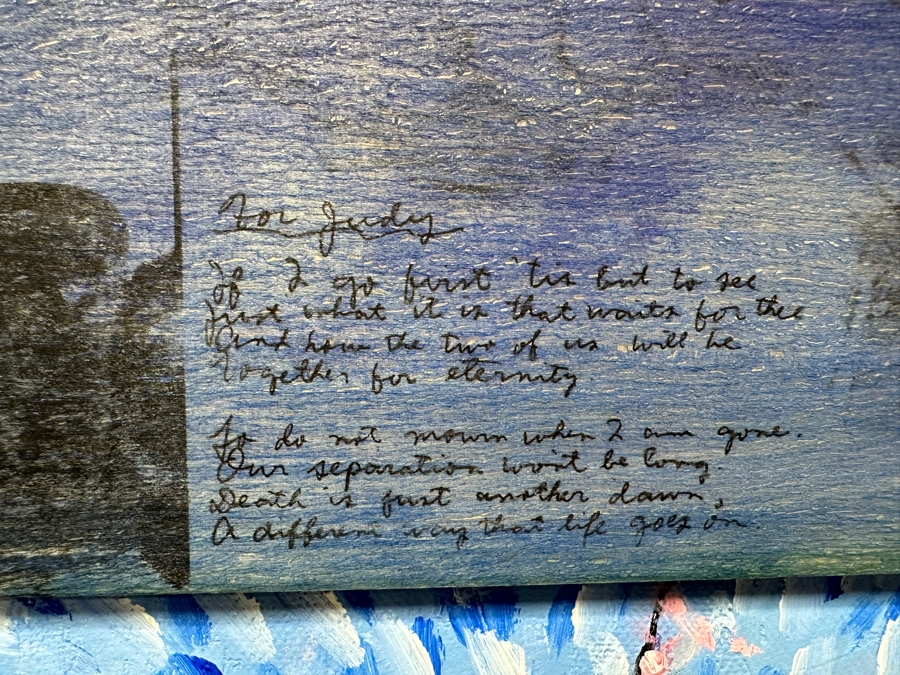 For Judy
If I go first 'tis but to see
Just what it is that waits for thee
And how the two of us will be
Together for eternity.
So do not mourn when I am gone.
Our separation won't be long.
Death is just another dawn,
A different way that life goes on.